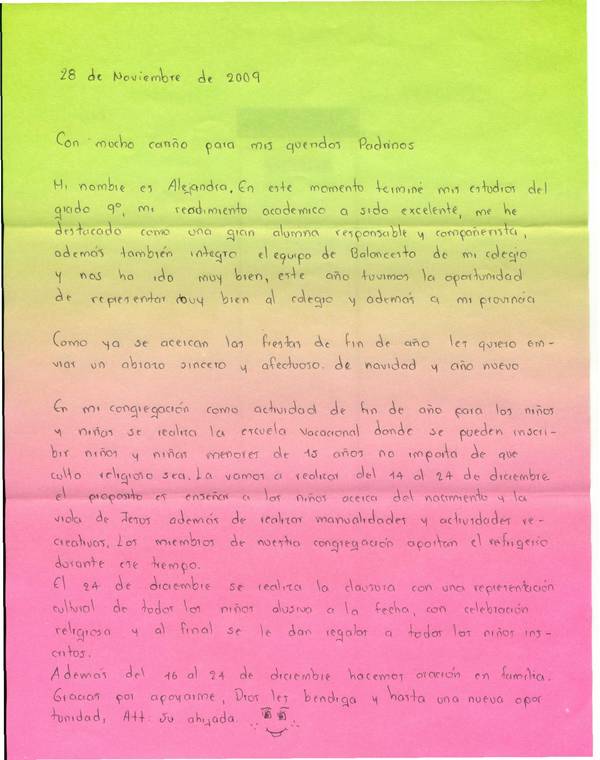 28 de Noviembre de 2009
Con mucho cariño para mis queridos Padrinos
Mi nombre es Alejandra, En este momento terminé mis estudios del
grado 9º, mi rendimiento academico a sido excelente, me he
destacado como una gran alumna responsable y compañerista,
además también integro el equipo de Baloncesto de mi colegio
y nos ha ido muy bien, este año tuvimos la oportunidad
de representar muy bien al colegio y además a mi provincia
Como ya se acercan las fiestas de fin de año les quiero en-
viar un abrazo sincero y afectuoso. de navidad y año nuevo
En mi congregación como actividad de fin de año para los niños
y niñas se realiza la escuela vacacional donde se pueden inscri-
bir niños y niñas menores de 15 años no importa de que
culto religioso sea. La vamos a realizar del 14 al 24 de diciembre
el proposito es enseñar a los niños acerca del nacimiento y la
vida de Jesus además de realizar manualidades y actividades re-
creativas. Los miembros de nuestra congregación aportan el refrigerio
durante ese tiempo.
El 24 de diciembre se realiza la clausura con una representación
cultural de todos los niños alusivo a la fecha, con celebración
religiosa y al final se le dan regalos a todos los niños ins-
critos.
Además del 16 al 24 de diciembre hacemos oración en familia.
Gracias por apoyarme, Dios les bendiga y hasta una nueva opor
tunidad, Att: Su ahijada.